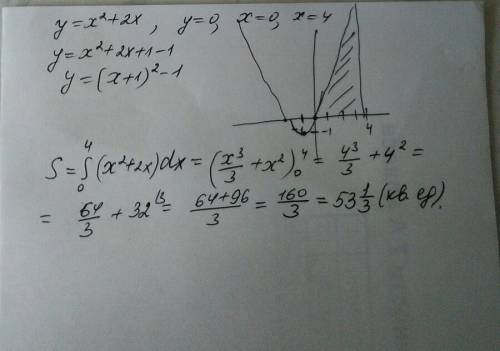 y=x²+2x, y=0, x=0, x=4
y=x²+2x+1-1
y=(x+1)²-1
-1 4
S=∫₀⁴(x²+2x)dx=(x³/3+x²)₀⁴=4³/3+4²=
=64/3+32^{\3}=64+96/3=160/3=53 1/3 (кв. ед).